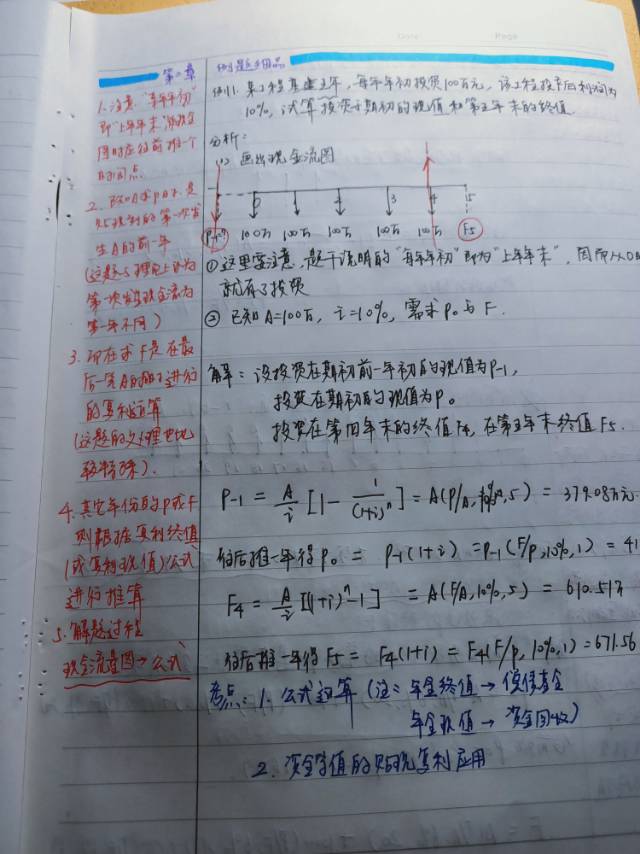 Date
Page
第二章
例题精品
例1. 某工程基建五年，每年年初投资100万元，该工程投产后利润为
10%，试算投资于期初的现值和第五年末的终值
分析：
(1) 画出现金流图
0 1 2 3 4 5
P-1=? 100万 100万 100万 100万 100万 F5
① 这里要注意，题干说明的“每年年初”即为“上年年末”，因而从0时
就有了投资
② 已知A=100万，i=10%，需求P0与F.
解：设投资在期初前一年初的现值为P-1，
投资在期初的现值为P0
投资在第四年末的终值F4, 在第五年末终值F5.
P-1 = A/i [1 - 1/(1+i)^n] = A(P/A, 10%, 5) = 379.08万元
往后推一年得P0 = P-1(1+i) = P-1(F/P, 10%, 1) = 41
F4 = A/i [(1+i)^n - 1] = A(F/A, 10%, 5) = 610.51万
往后推一年得F5 = F4(1+i) = F4(F/P, 10%, 1) = 671.56
考点：1. 公式运算（注：年金终值→偿债基金
年金现值→资金回收）
2. 资金等值的贴现复利应用
1. 注意“每年年初”
即“上年年末”
同时应往前推一个
时间点
2. 已知A求P时，是
贴现到的第一次发
生A的前一年
（这题与理论上认为
第一次发生现金流为
第一年不同）
3. 而在求F是在最
后一笔A的时候进行
的复利运算
4. 其它年份的P或F
则根据复利终值
（或复利现值）公式
进行推算
5. 解题过程
现金流量图→公式